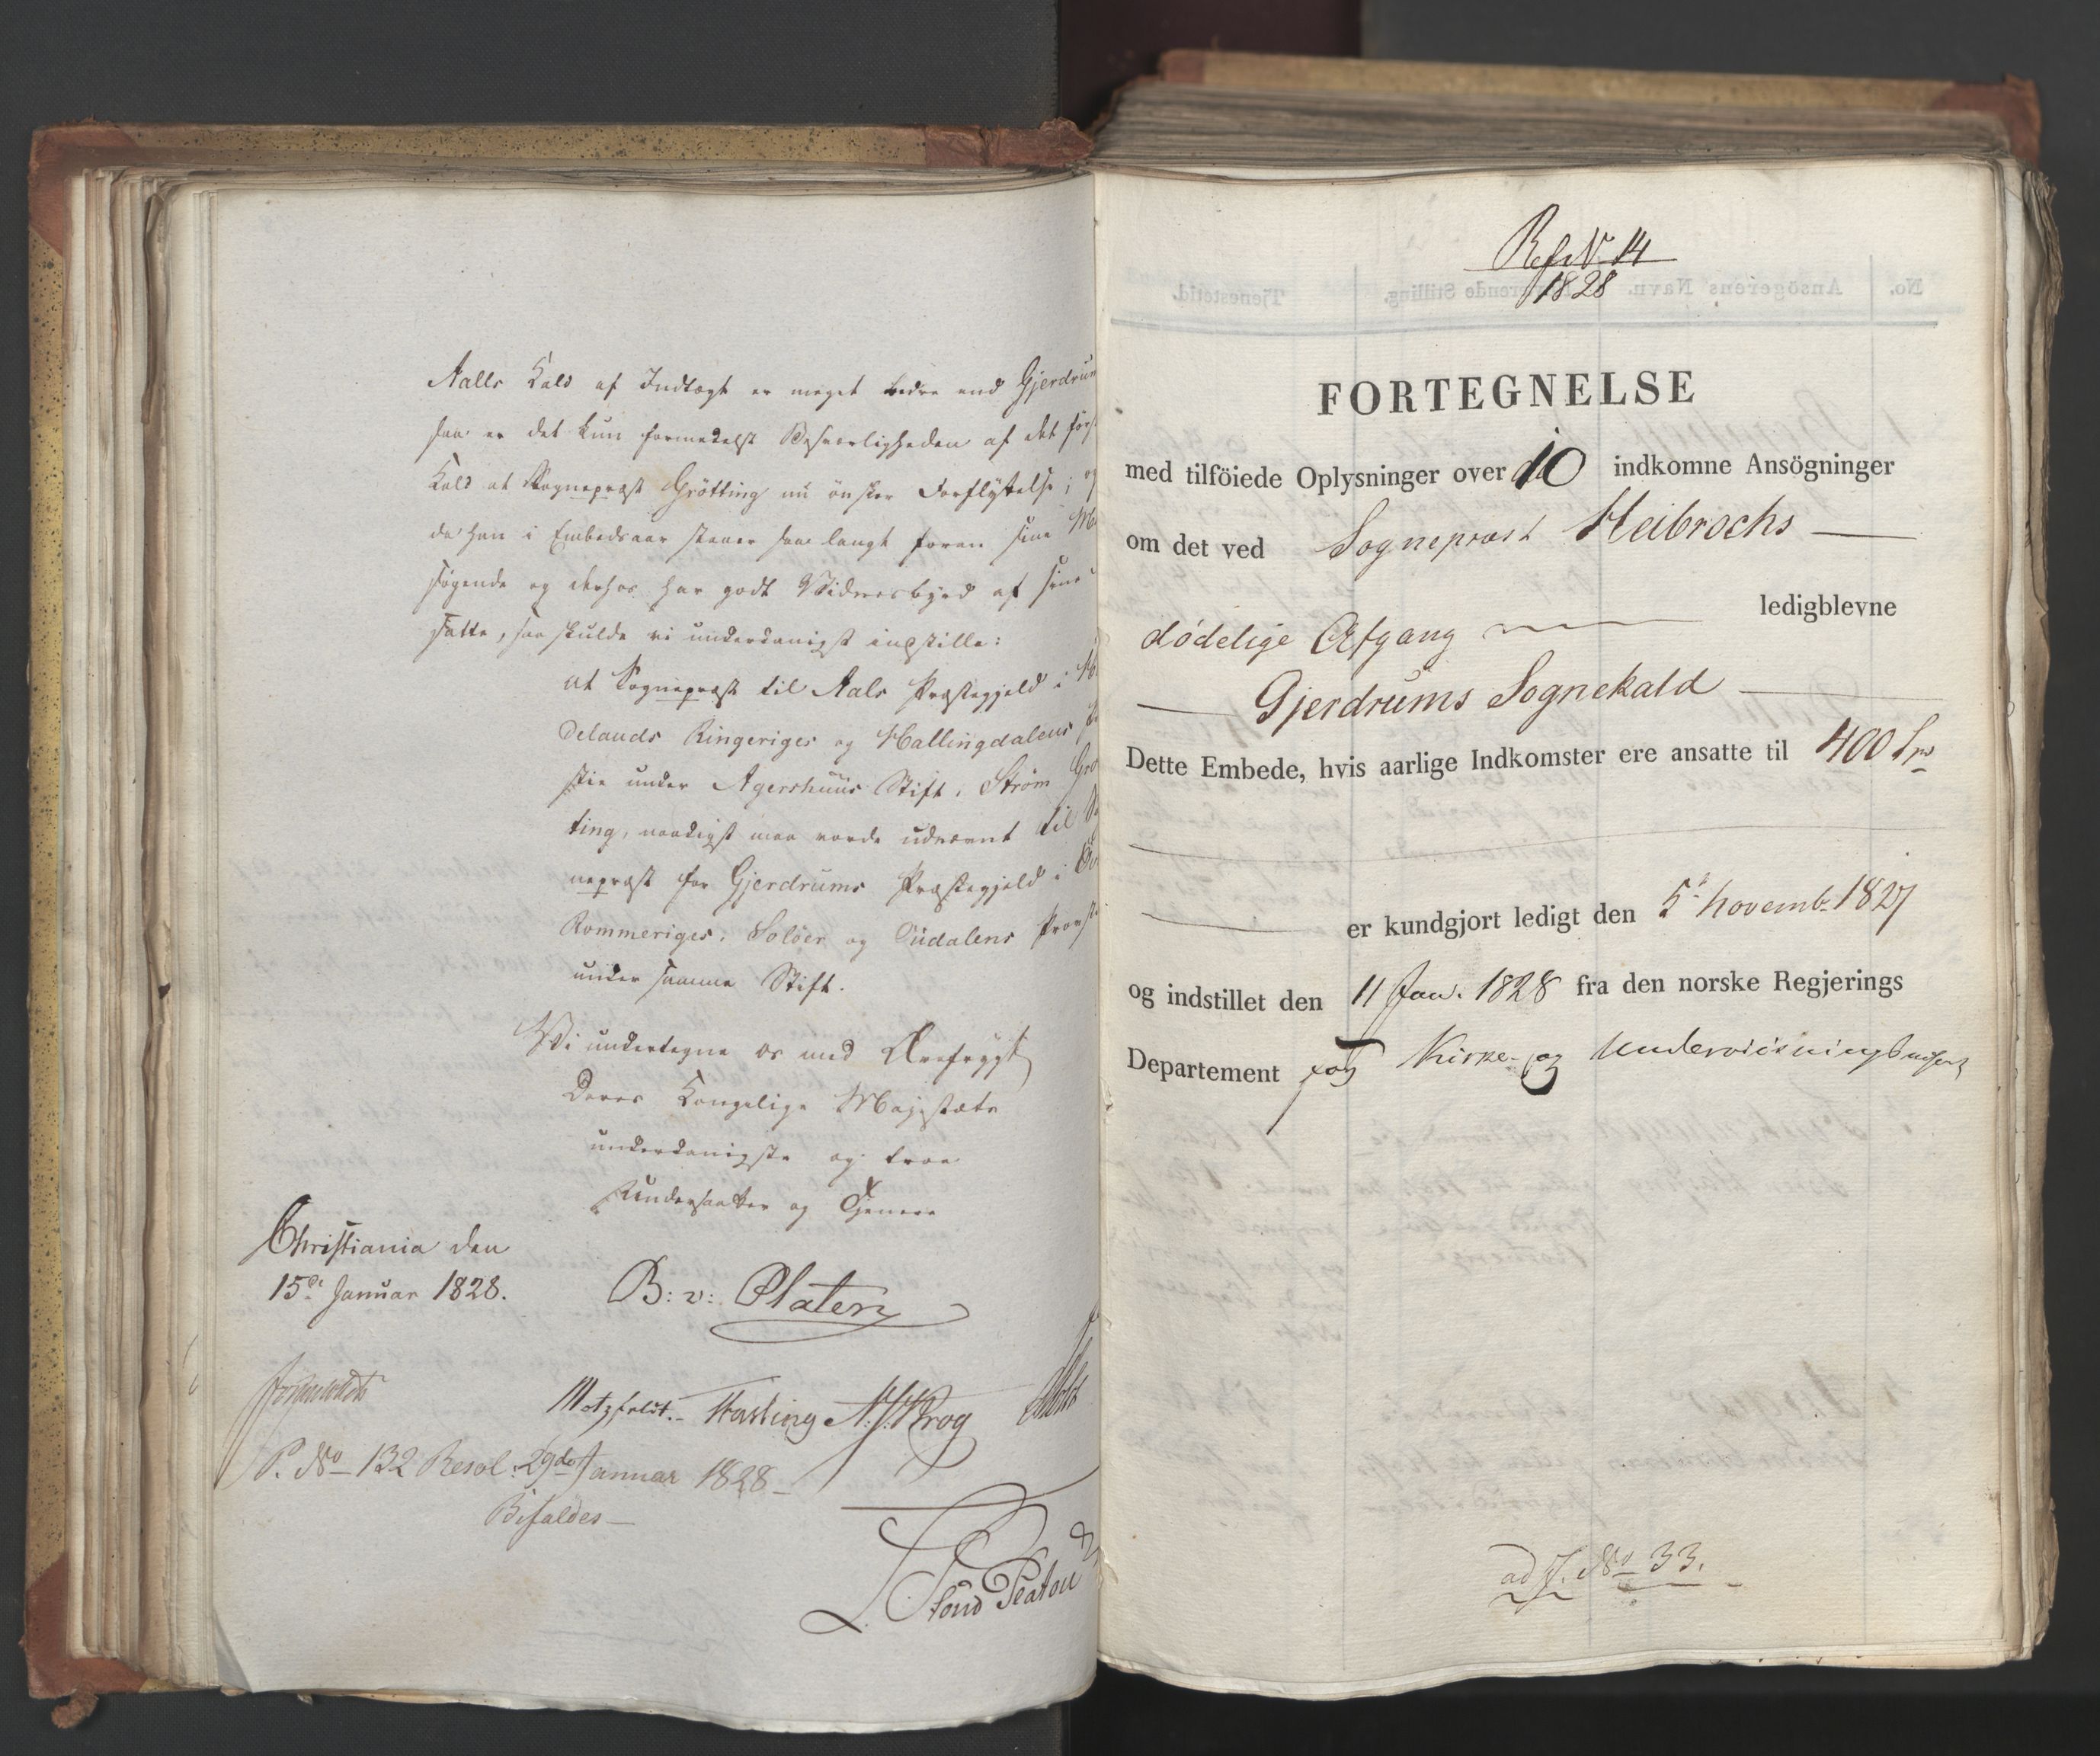 Aalls Kald af Indtægt er meget bedre end Gjerdrum
saa er det kun formedelst Besværligheden af det først
Kald at Sognepræst Grötting nu önsker Forflyttelse; og
da han i Embedsaar staaer saa langt foran sine Me
søgende og derhos har godt Vidnesbyrd af sine
satte, saa skulde vi underdanigst indstille:
at Sognepræst til Aals Præstegjeld i
delands Ringeriges og Hallingdalens
stie under Agershuus Stift, Strøm Grö
ting, naadigst maa vorde udnævnt til So
nepræst for Gjerdrums Præstegjeld i Öv
Rommeriges, Soløer og Oudalens Provst
under samme Stift.
Vi undertegne os med Ærefrygt
Deres Kongelige Majestæts
underdanigste og troe
Undersaatter og Tjenere
Christiania den
15de Januar 1828.
B: v: Platen
Motzfeldt. Fasting N. J. Krog
P. No 132 Resol. 29de Januar 1828
Bifaldes
Ref. N. 14
1828
FORTEGNELSE
med tilföiede Oplysninger over 10 indkomne Ansögninger
om det ved Sognepræst Heibrochs
dødelige Afgang ledigblevne
Gjerdrums Sognekald
Dette Embede, hvis aarlige Indkomster ere ansatte til 400 Spd
er kundgjort ledigt den 5te Novemb. 1827
og indstillet den 11 Jan. 1828 fra den norske Regjerings
Departement for Kirke- og Undervisningsvæsenet
ad J. No 33.